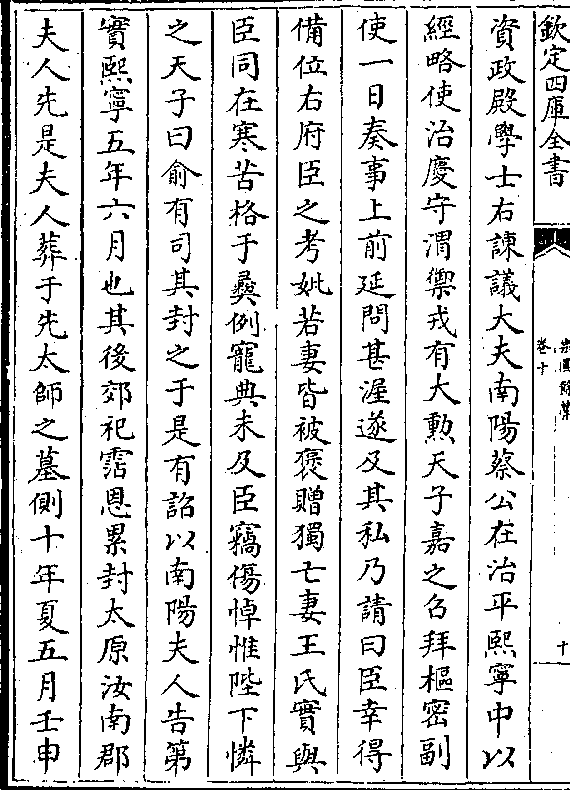 欽定四庫全書
卷十
十
資政殿學士右諫議大夫南陽蔡公在治平熙寧中以
經略使治慶守渭禦戎有大勲天子嘉之召拜樞密副
使一日奏事上前延問甚渥遂及其私乃請曰臣幸得
備位右府臣之考妣若妻皆被褒贈獨亡妻王氏實與
臣同在寒苦格于彜例寵典未及臣竊傷悼惟陛下憐
之天子曰俞有司其封之于是有詔以南陽夫人告第
實熙寧五年六月也其後郊祀霑恩累封太原汝南郡
夫人先是夫人葬于先太師之墓側十年夏五月壬申